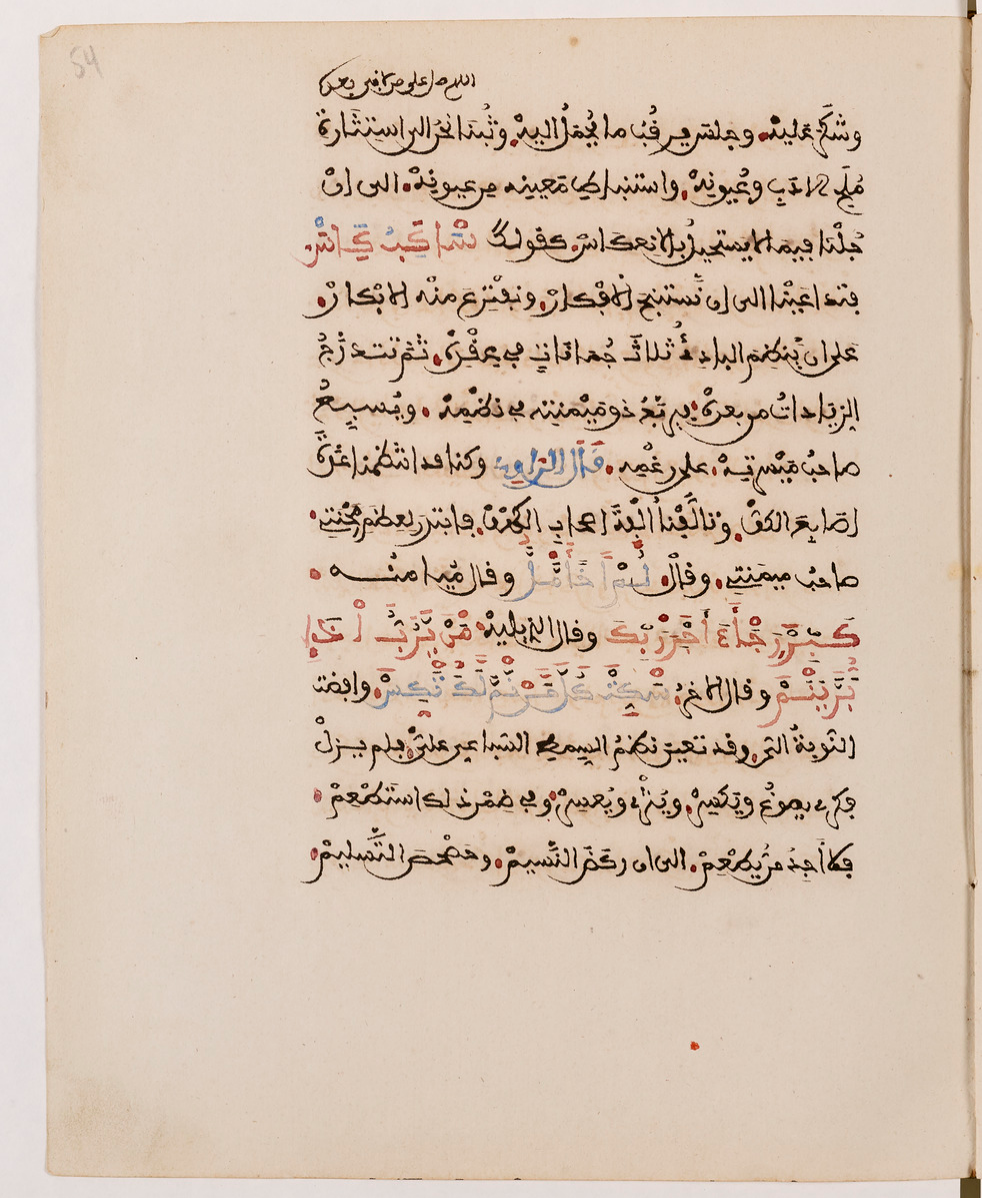 54
اللهم صل على من لا نبي بعده
وشكر عليه. وجلس يرقب ما يحمل اليه. وثبنا نحن الى استثارة
ملح الادب وعيونه. واستنباط معينه من عيونه. الى ان
جلنا فيما لا يستحيل بالانعكاس. كقولك ساكب كاس.
فتداعينا الى ان نستنتج له الافكار. ونفترع منه الابكار.
على ان ينظم البادئ ثلاث جمانات في عقده. ثم تتدرج
الزيادات من بعده. فيربع ذو ميمنته في نظمه. ويسبع
صاحب ميسرته. على رغمه. قال الراوي وكنا قد انتظمنا عدة
اصابع الكف. وتالفنا الفة اصحاب الكهف. فابتدر لعظم محنتي.
صاحب ميمنتي. وقال. لم اخا مل وقال ميامنه.
كبر رجاء اجر ربك وقال الذي يليه. من يرب اذا
بر ينم وقال الاخر. سكت كل من نم لك تكس. وافضت
النوبة الي. وقد تعين نظم السمط السباعي علي. فلم يزل
فكري يصوغ ويكسر. ويثري ويعسر. وفي ضمن ذلك استطعم.
فلا اجد من يطعم. الى ان ركد النسيم. وحصحص التسليم.